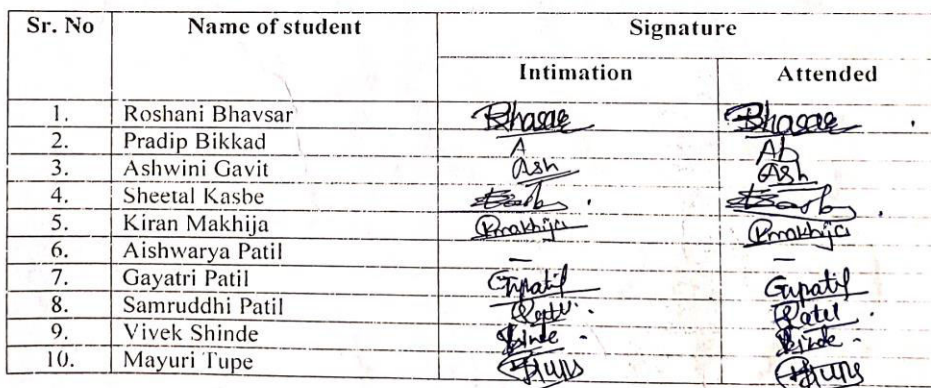 Sr. No Name of student Signature
Intimation Attended
1. Roshani Bhavsar Bhasae Bhasae
2. Pradip Bikkad A Ab
3. Ashwini Gavit Ash Ash
4. Sheetal Kasbe
5. Kiran Makhija Kmakhija Kmakhija
6. Aishwarya Patil — —
7. Gayatri Patil Gupatil Gupatil
8. Samruddhi Patil Patil
9. Vivek Shinde Shinde Shinde
10. Mayuri Tupe